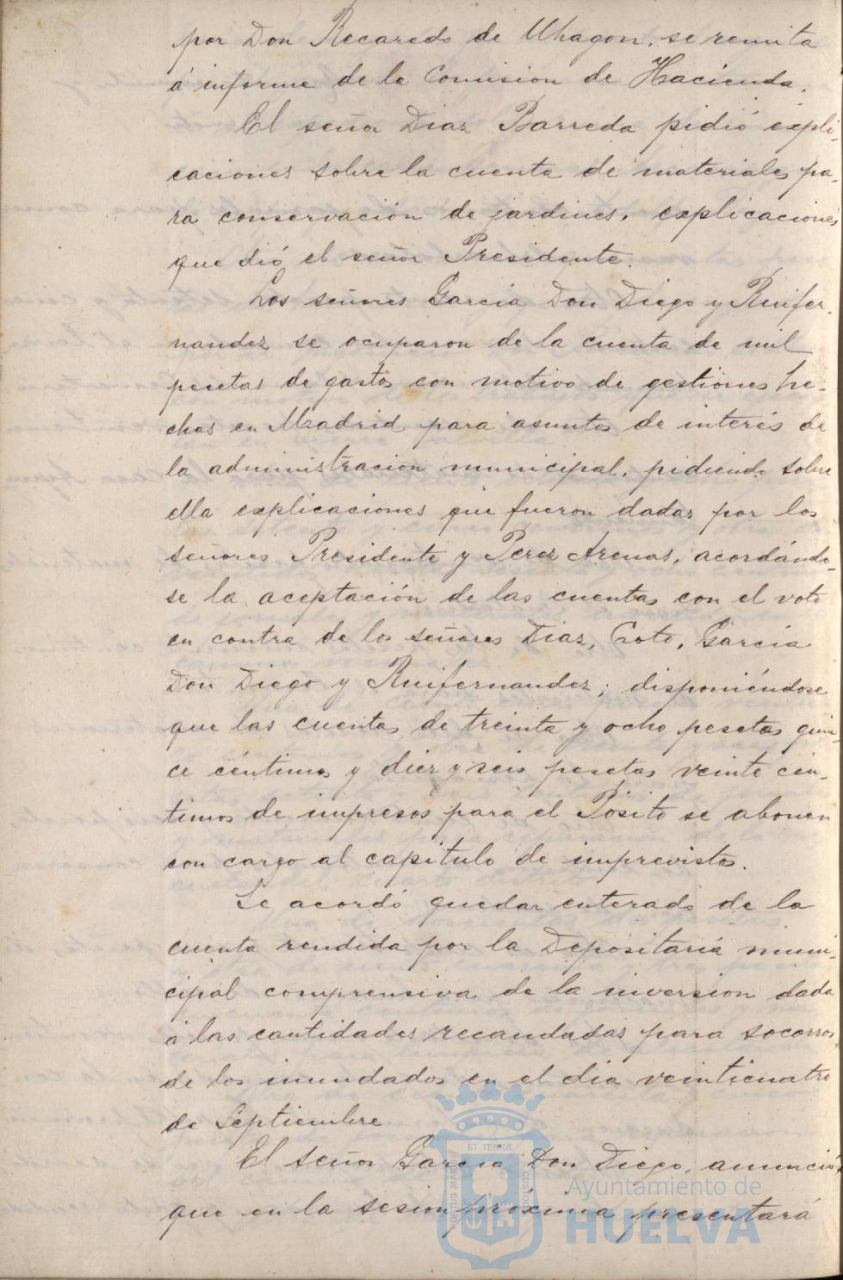 por Don Recaredo de Uhagon, se remita
á informe de la Comision de Hacienda.
El señor Diaz Barreda pidió expli-
caciones sobre la cuenta de materiales pa-
ra conservación de jardines, explicaciones
que dió el señor Presidente.
Los señores Garcia Don Diego y Ruifer-
nandez se ocuparon de la cuenta de mil
pesetas de gastos con motivo de gestiones he-
chas en Madrid para asuntos de interés de
la administracion municipal, pidiendo sobre
ella explicaciones que fueron dadas por los
señores Presidente y Perez Arenas, acordándo-
se la aceptación de las cuentas con el voto
en contra de los señores Diaz, Coto, Garcia
Don Diego y Ruifernandez; disponiéndose
que las cuentas de treinta y ocho pesetas quin-
ce céntimos y diez y seis pesetas veinte cén-
timos de impresos para el Pósito se abonen
con cargo al capitulo de imprevistos.
Se acordó quedar enterado de la
cuenta rendida por la Depositaria muni-
cipal comprensiva de la inversion dada
á las cantidades recaudadas para socorros
de los inundados en el dia veinticuatro
de Septiembre.
El señor Garcia Don Diego, anunció
que en la sesion proxima presentará
ET TERRÆ
Ayuntamiento de
HUELVA